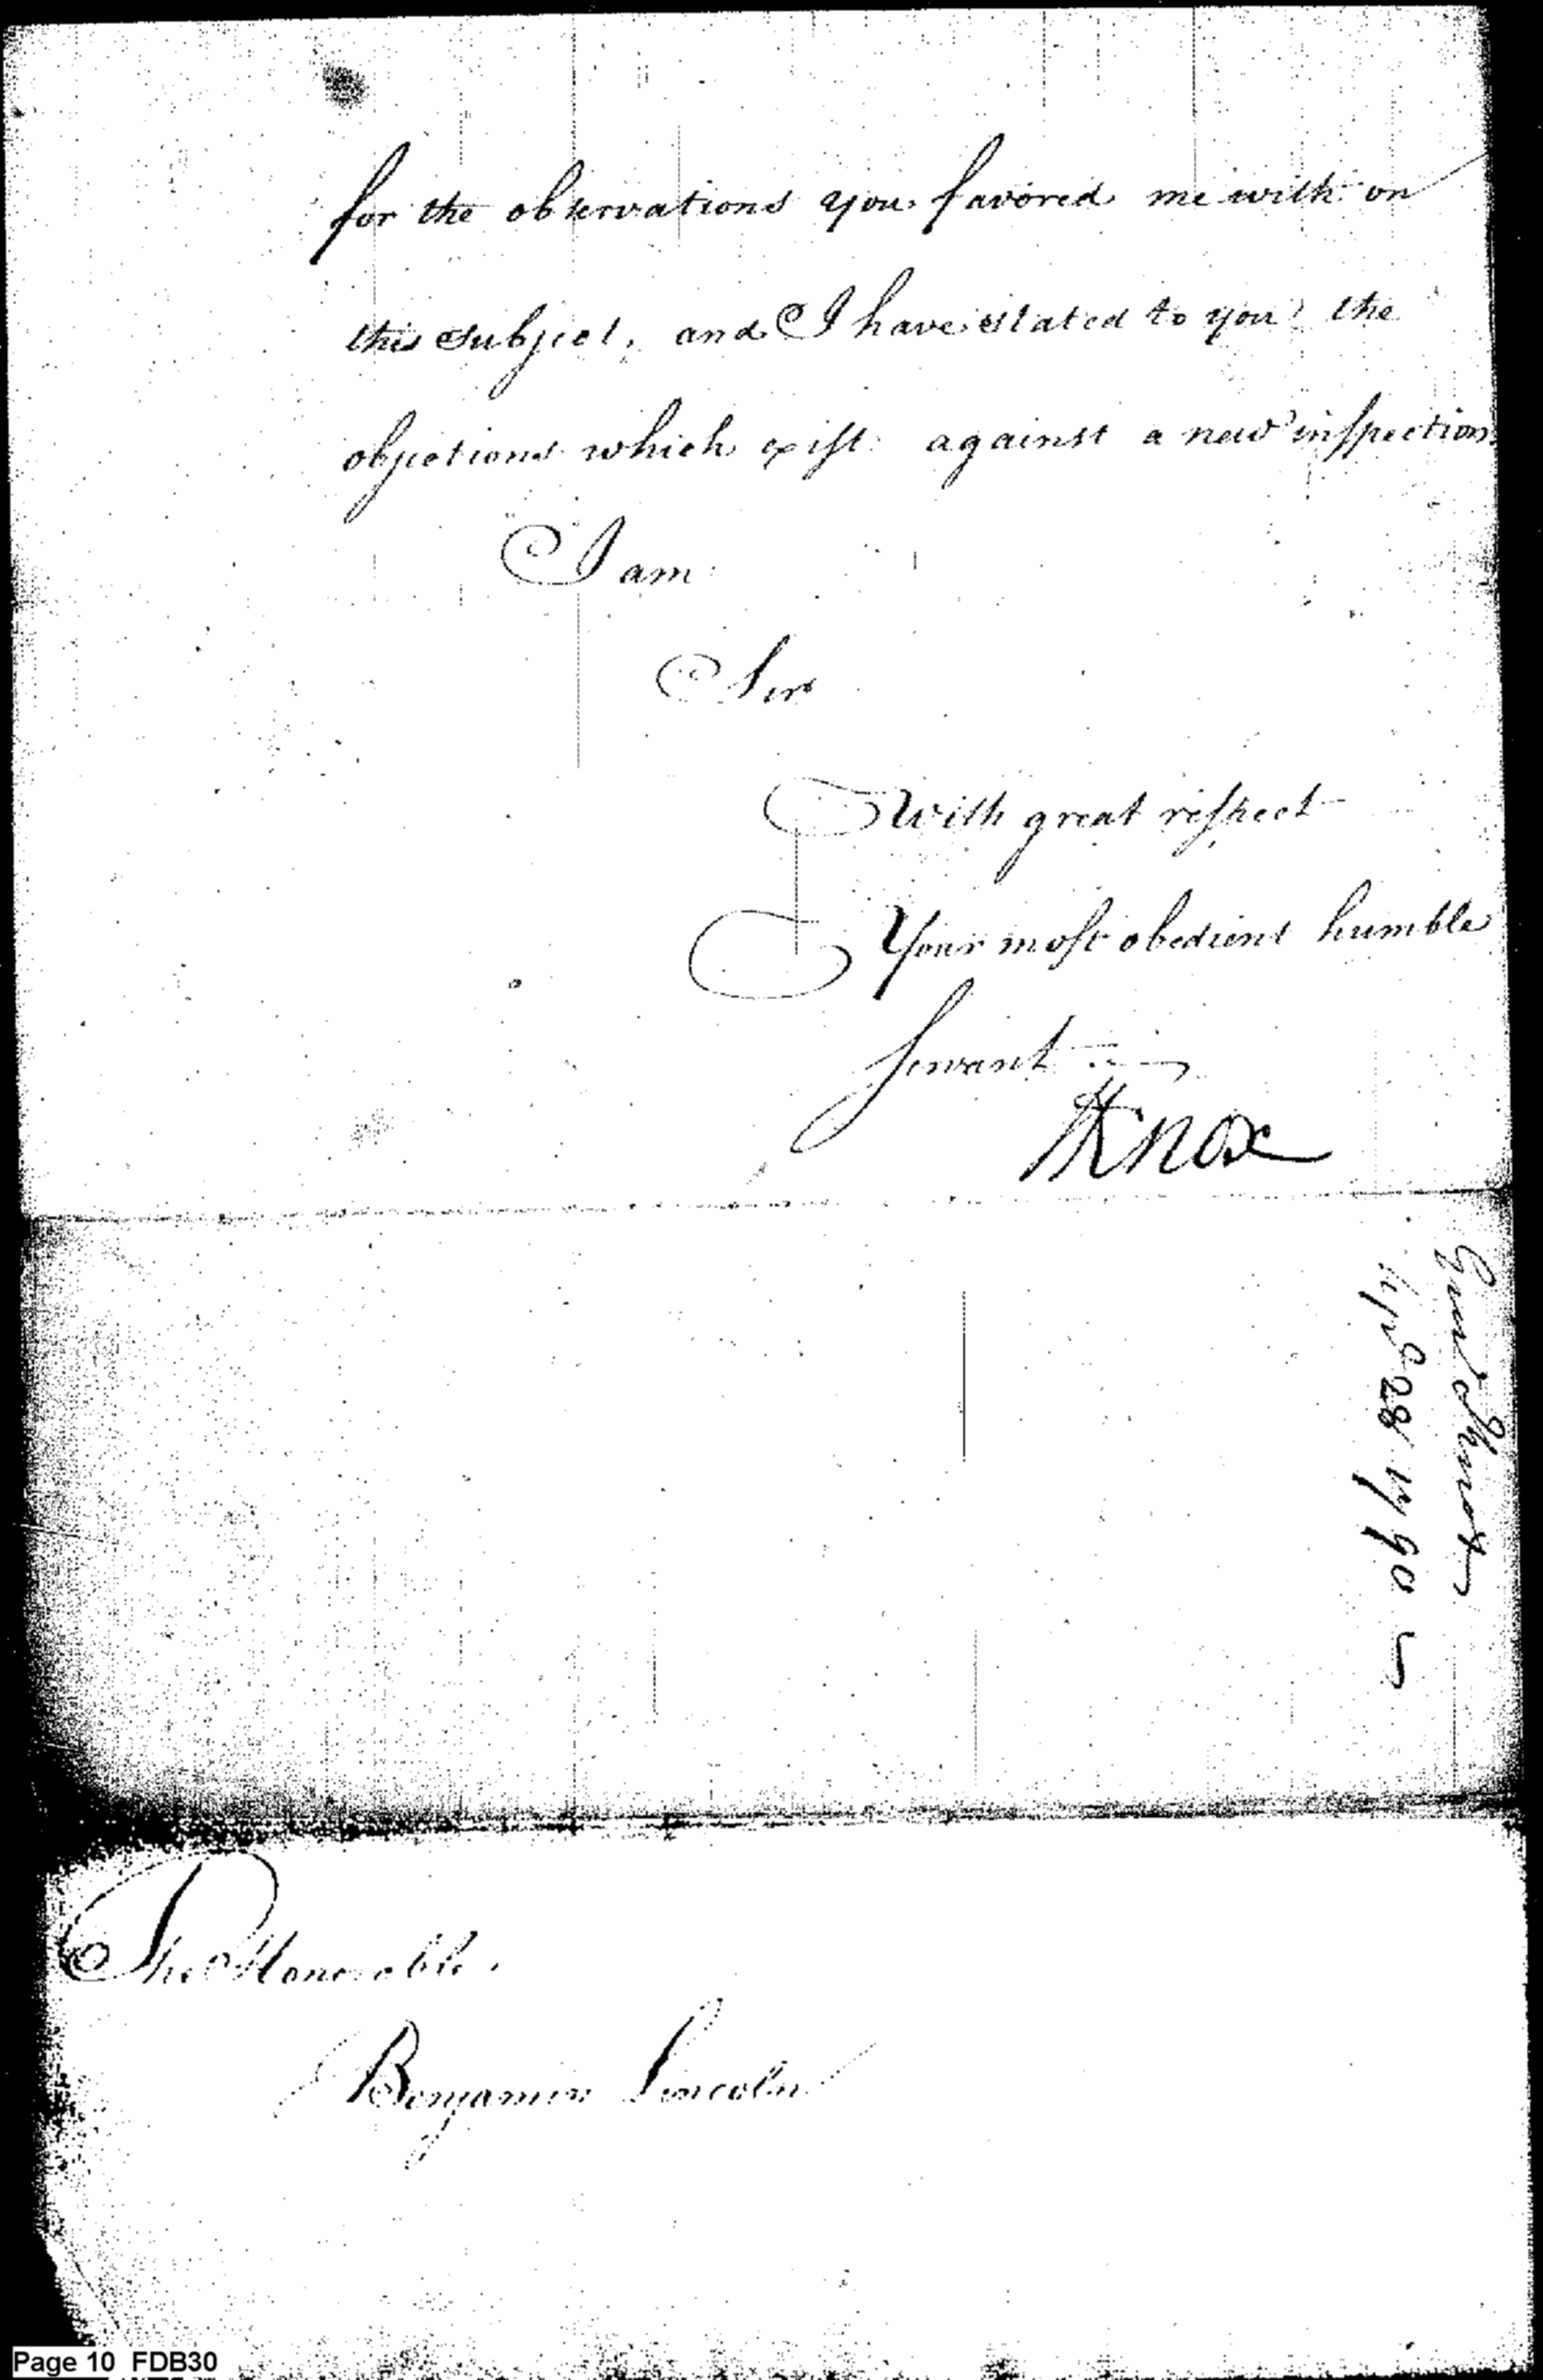 for the observations you favored me with on
this subject, and I have stated to you the
objections which exist against a new inspection
I am
Sir
With great respect
Your most obedient humble
Servant
HKnox
Genl Knox
Apr 28 1790
The Honorable
Benjamin Lincoln
Page 10 FDB30